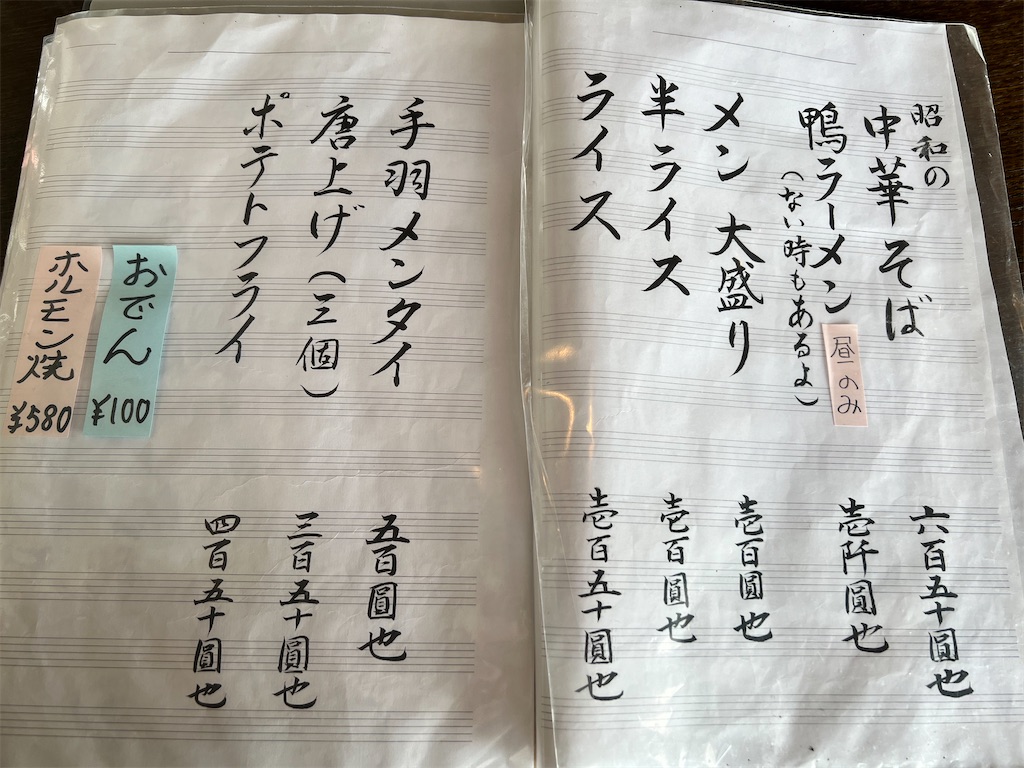 昭和の
中華そば
六百五十圓也
鴨ラーメン
昼のみ
(ない時もあるよ)
壱阡圓也
メン 大盛り
壱百圓也
半ライス
壱百圓也
ライス
壱百五十圓也
手羽メンタイ
五百圓也
唐上げ(三個)
三百五十圓也
ポテトフライ
四百五十圓也
おでん
¥100
ホルモン焼
¥580